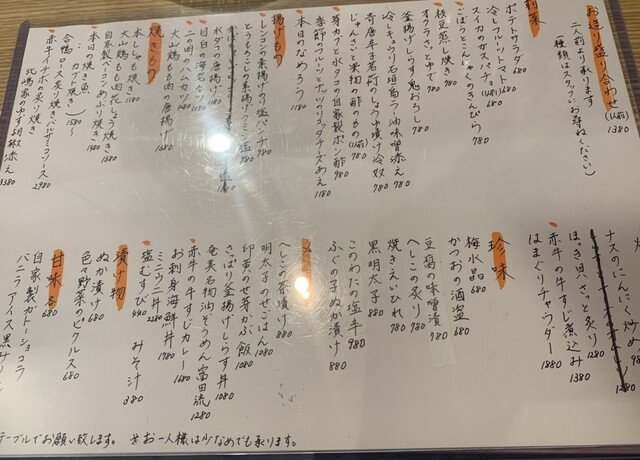 お造り盛り合わせ(1人前) 1380
二人前より承ります
(種類はスタッフにお尋ねください)
前菜
ポテトサラダ 680
冷しフルーツトマト 680
スイカのガスパチョ(1人前) 680
ごぼうとこんにゃくのきんぴら 780
枝豆蒸し焼き 780
オクラさっとゆで 780
釜揚げしらす鬼おろし 780
冷しキュウリ石垣島ラー油味噌添え 780
奇唐辛子茗荷のしょうゆ漬け冷奴 780
じゅんさいと果物の酢のもの(1人前) 780
芽カブと水タコの自家製ポン酢 980
季節のフルーツとナッツのリコッタチーズあえ 1180
本日のなめろう 1180
揚げもの
レンコンの素揚げのり塩パンチ 780
とうもろこしの素揚げクミン塩 980
水ダコの唐揚げ 1180
目白の海老カツ
二の間のハムカツ 1180
大山鶏もも肉唐揚げ 1680
焼きもの
本ししゃも焼き 1180
大山鶏もも肉花しょう焼き 1380
自家製ベーコンあぶり焼き 1380
本日の焼き魚
〃 カブト焼き 1580
合鴨ロース炙り焼きハルダミコソース 2980
赤牛イチボの炙り焼き
北嶋家のゆず胡椒添え 3380
ナスのにんにく炒め 980
ほっき貝さっと炙り 1280
赤牛の牛すじ煮込み 1380
はまぐりチャウダー 1880
珍味
梅水晶 680
かつおの酒盗 680
豆腐の味噌漬 780
へしこの炙り 780
焼きえいひれ 780
黒明太子 880
このわたの塩辛 980
ふぐの子ぬか漬け 880
へしこの茶漬け 880
明太子のせごはん 1080
卵黄のせ芽かぶ飯 1080
さっぱり釜揚げしらす丼 1080
奄美名物油そうめん富田流 1280
赤牛の牛すじカレー 1680
お刺身海鮮丼 1780
ミニウニ丼 2280
塩むすび 480
みそ汁 380
漬け物
ぬか漬け 680
色々野菜のピクルス 680
甘味
自家製ガトーショコラ
バニラアイス黒
テーブルでお願い致します。 ※お一人様は少なめでも承ります。